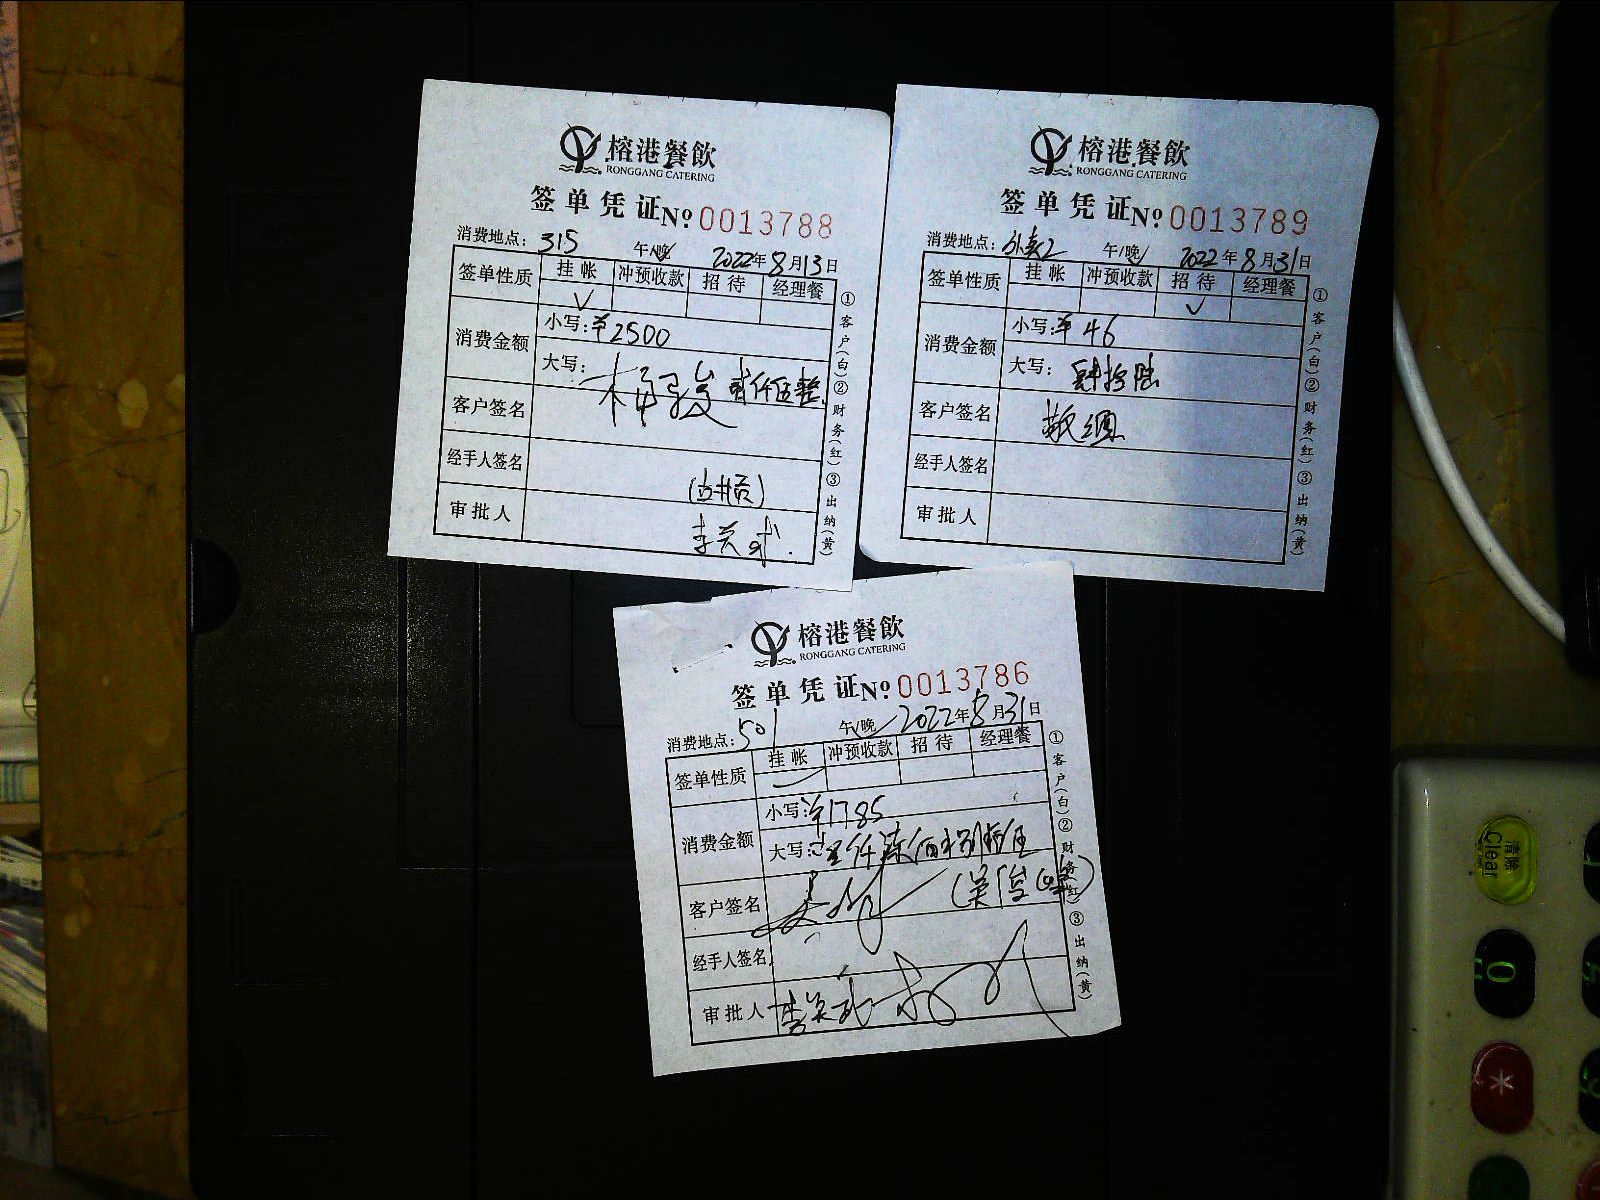 榕港餐飲
RONGGANG CATERING
签单凭证 № 0013788
消费地点: 315 午/晚 2022年8月13日
签单性质 挂帐 冲预收款 招待 经理餐
✓
消费金额 小写:¥2500
大写: 贰仟伍整
客户签名
经手人签名
审批人
①客户(白)②财务(红)③出纳(黄)
榕港餐飲
RONGGANG CATERING
签单凭证 № 0013789
消费地点: 外卖2 午/晚 2022年8月31日
签单性质 挂帐 冲预收款 招待 经理餐
✓
消费金额 小写:¥46
大写: 肆拾陆
客户签名
经手人签名
审批人
①客户(白)②财务(红)③出纳(黄)
榕港餐飲
RONGGANG CATERING
签单凭证 № 0013786
消费地点: 501 午/晚 2022年8月31日
签单性质 挂帐 冲预收款 招待 经理餐
消费金额 小写:¥1785
大写: 壹仟柒佰捌拾伍
客户签名
经手人签名
审批人
①客户(白)②财务(红)③出纳(黄)
清除
Clear
0
*